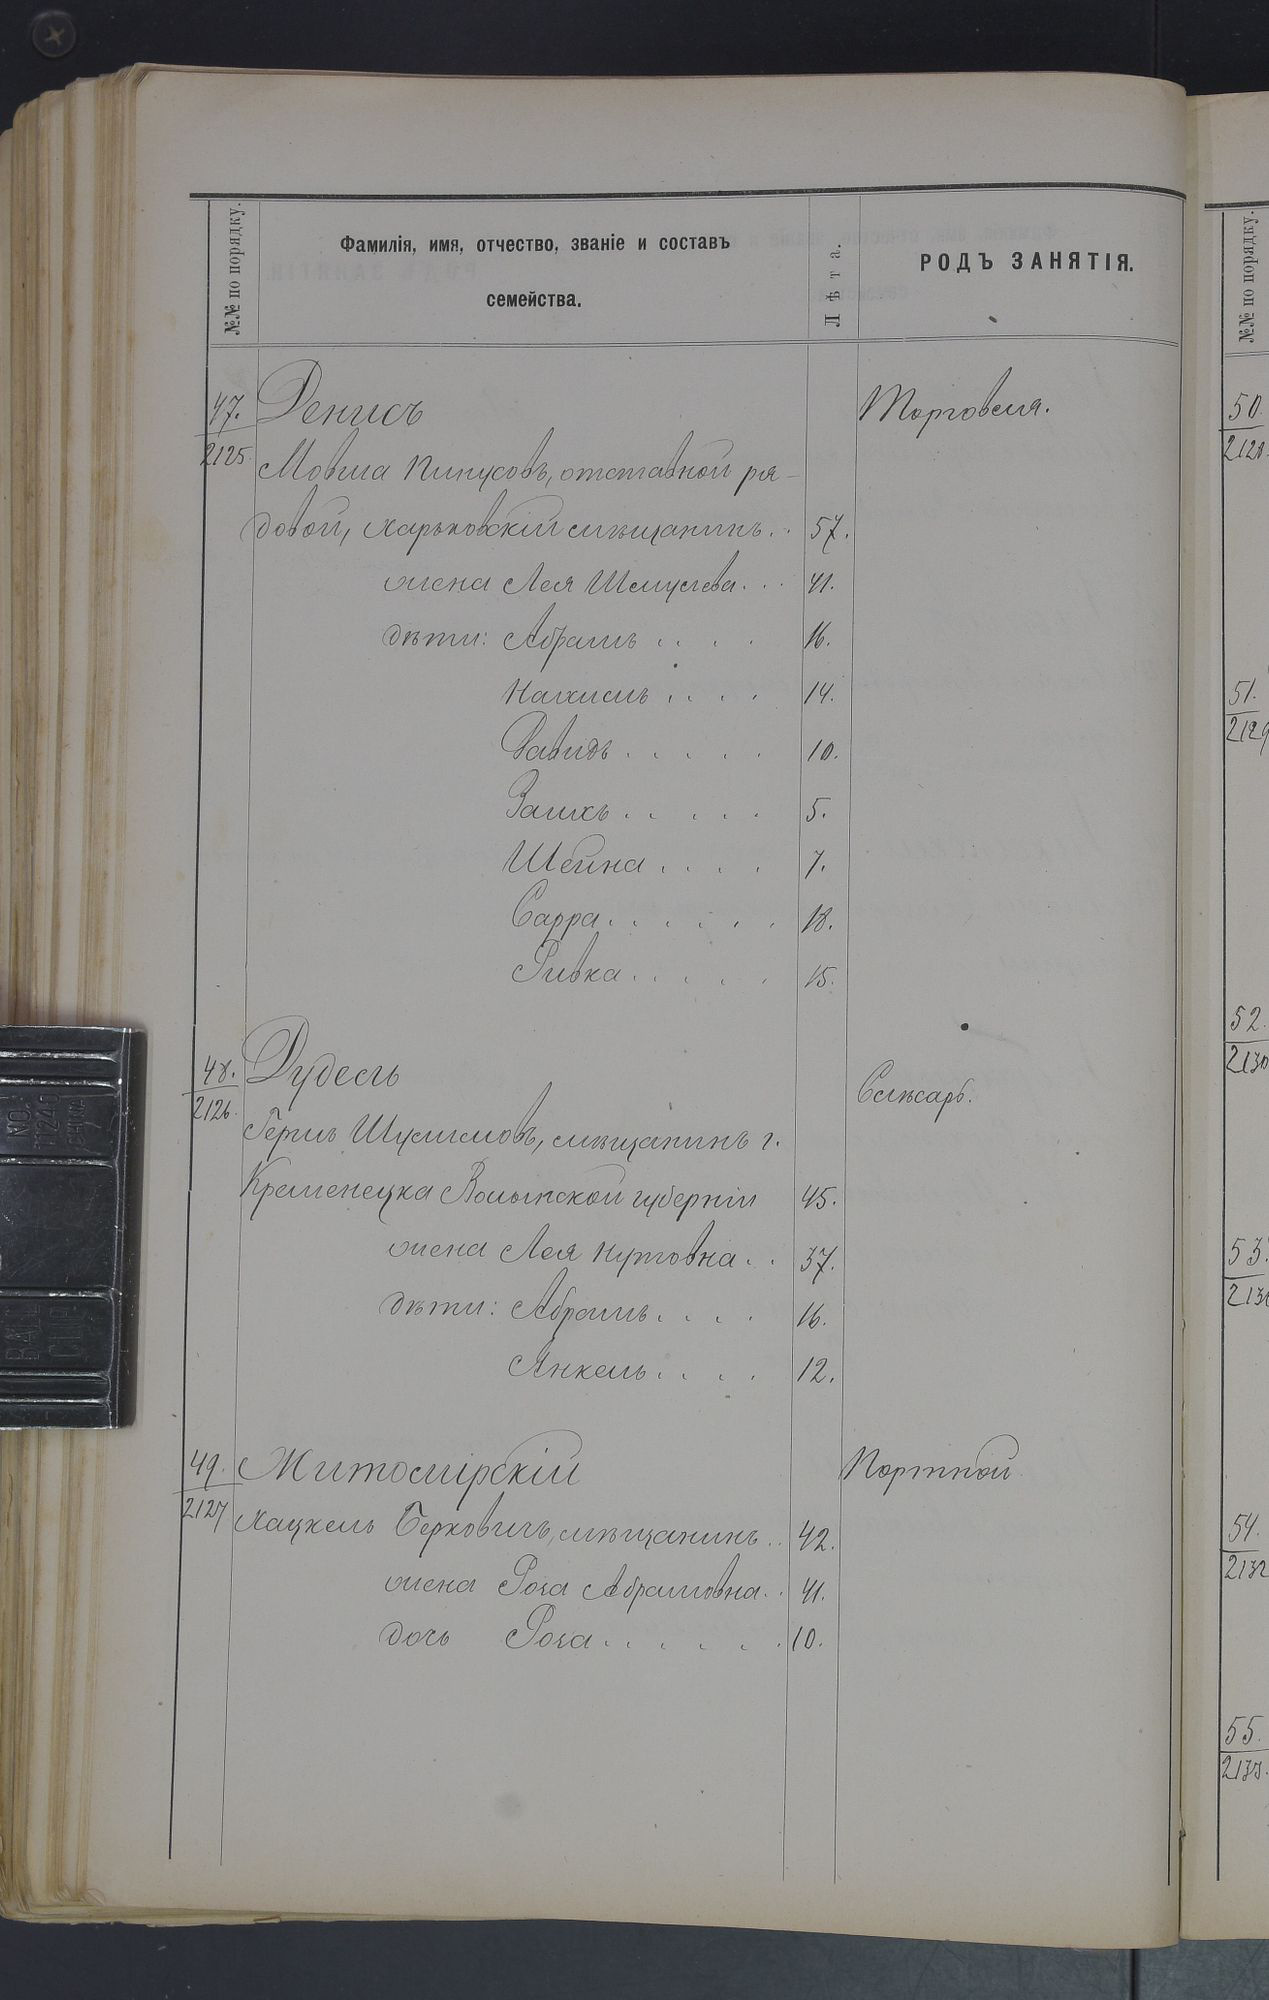 №№ по порядку.
Фамилія, имя, отчество, званіе и составъ
семейства.
Лѣта.
РОДЪ ЗАНЯТІЯ.
47.
2125.
Денисъ
Торговля.
Мовша Пинусовъ, отставной ря-
довой, харьковскій мѣщанинъ.. 57.
жена Лея Шмулева... 41.
дѣти: Абрамъ.... 16.
Нахимъ.... 14.
Давидъ..... 10.
Заикъ..... 5.
Шейна.... 7.
Сарра...... 18.
Ривка..... 15.
48.
2126.
Дудель
Слѣсарь.
Гершъ Шулимовъ, мѣщанинъ г.
Кременецка Волынской губерніи 45.
жена Лея Нутовна.. 37.
дѣти: Абрамъ.... 16.
Янкель.... 12.
49.
2127
Житомірскій
Портной
Хацкель Берковичъ, мѣщанинъ.. 42.
жена Роза Абрамовна.. 41.
дочь Роза...... 10.
№№ по порядку.
50.
2128
51.
2129
52.
2130
53.
2131
54.
2132
55.
2133.
NO.
11240
CHINA
BALL
CLIP